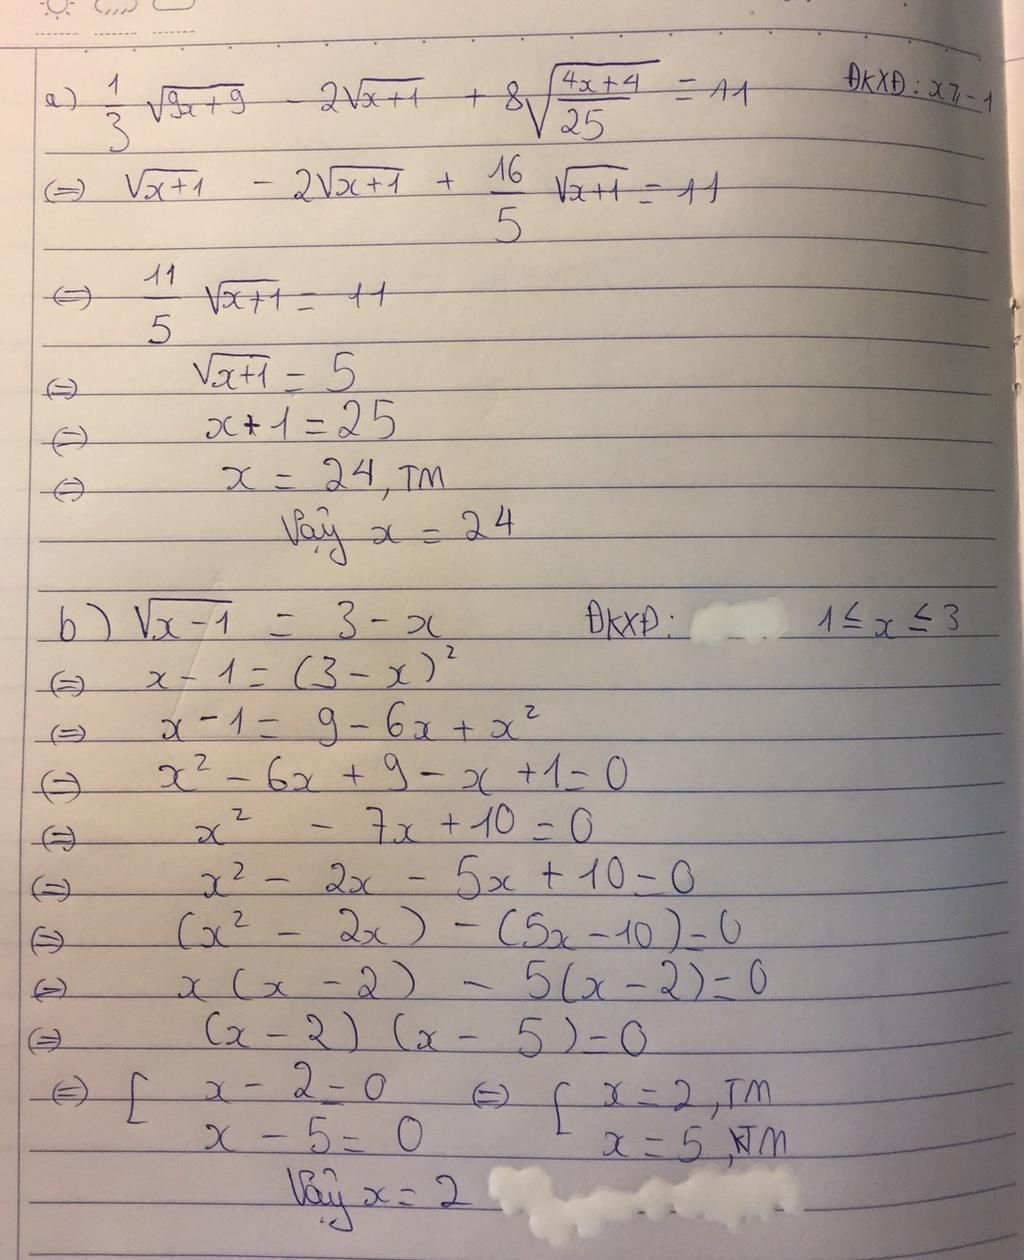 a) 1/3 √(9x+9) - 2√(x+1) + 8√((4x+4)/25) = 11 ĐKXĐ: x ≥ -1
⇔ √(x+1) - 2√(x+1) + 16/5 √(x+1) = 11
⇔ 11/5 √(x+1) = 11
⇔ √(x+1) = 5
⇔ x + 1 = 25
⇔ x = 24, TM
Vậy x = 24
b) √(x-1) = 3 - x ĐKXĐ: 1 ≤ x ≤ 3
⇔ x - 1 = (3 - x)²
⇔ x - 1 = 9 - 6x + x²
⇔ x² - 6x + 9 - x + 1 = 0
⇔ x² - 7x + 10 = 0
⇔ x² - 2x - 5x + 10 = 0
⇔ (x² - 2x) - (5x - 10) = 0
⇔ x(x - 2) - 5(x - 2) = 0
⇔ (x - 2) (x - 5) = 0
⇔ [ x - 2 = 0 ⇔ [ x = 2, TM
x - 5 = 0 x = 5, KTM
Vậy x = 2